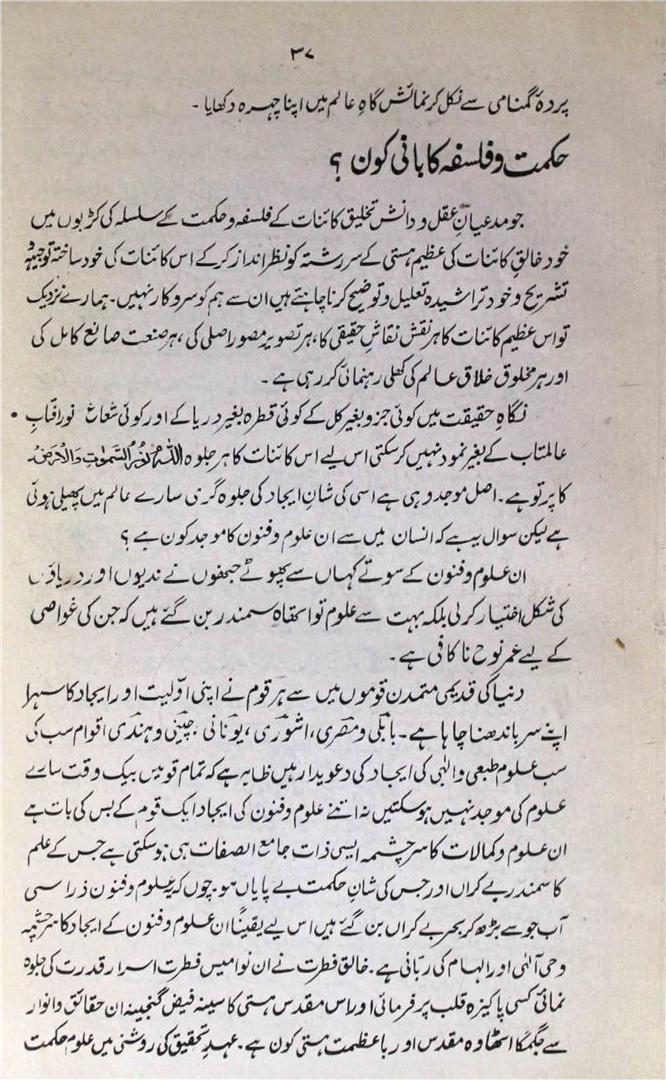 ۳۷
پردۂ گمنامی سے نکل کر نمائش گاہِ عالم میں اپنا چہرہ دکھایا ۔
حکمت و فلسفہ کا بانی کون ؟
جو مدعیانِ عقل و دانش تخلیق کائنات کے فلسفہ و حکمت کے سلسلہ کی کڑیوں میں
خود خالقِ کائنات کی عظیم ہستی کے سررشتہ کو نظر انداز کرکے اس کائنات کی خود ساختہ توجیہہ و
تشریح و خود تراشیدہ تعلیل و توضیح کرنا چاہتے ہیں ان سے ہم کو سروکار نہیں۔ ہمارے نزدیک
تو اس عظیم کائنات کا ہر نقش نقاشِ حقیقی کا، ہر تصویر مصور اصلی کی، ہر صنعت صانع کامل کی
اور ہر مخلوق خلاق عالم کی کھلی رہنمائی کر رہی ہے ۔
نگاہِ حقیقت میں کوئی جزو بغیر کل کے کوئی قطرہ بغیر دریا کے اور کوئی شعاعِ نور آفتابِ
عالمتاب کے بغیر نمود نہیں کر سکتی اس لیے اس کائنات کا ہر جلوہ اَللّٰهُ نُوْرُ السَّمٰوٰتِ وَالْاَرْضِ
کا پرتو ہے۔ اصل موجد وہی ہے اسی کی شانِ ایجاد کی جلوہ گری سارے عالم میں پھیلی ہوئی
ہے لیکن سوال یہ ہے کہ انسان میں سے ان علوم و فنون کا موجد کون ہے ؟
ان علوم و فنون کے سوتے کہاں سے پھوٹے جنھوں نے ندیوں اور دریاؤں
کی شکل اختیار کر لی بلکہ بہت سے علوم تو اتھاہ سمندر بن گئے ہیں کہ جن کی غواصی
کے لیے عمر نوح ناکافی ہے ۔
دنیا کی قدیمی متمدن قوموں میں سے ہر قوم نے اپنی اوّلیت اور ایجاد کا سہرا
اپنے سر باندھنا چاہا ہے۔ بابلی و مصری، اشوری، یونانی، چینی و ہندی اقوام سب کی
سب علوم طبعی و الٰہی کی ایجاد کی دعویدار ہیں ظاہر ہے کہ تمام قومیں بیک وقت سارے
علوم کی موجد نہیں ہو سکتیں نہ اتنے علوم و فنون کی ایجاد ایک قوم کے بس کی بات ہے
ان علوم و کمالات کا سرچشمہ ایسی ذات جامع الصفات ہی ہو سکتی ہے جس کے علم
کا سمندر بے کراں اور جس کی شانِ حکمت بے پایاں موجوں کہ یہ علوم و فنون ذرا سی
آب جو سے بڑھ کر بحر بے کراں بن گئے ہیں اس لیے یقیناً ان علوم و فنون کے ایجاد کا سرچشمہ
وحی آلٰہی اور الہام کی ربانی ہے۔ خالق فطرت نے ان نوامیس فطرت اسرار قدرت کی جلوہ
نمائی کسی پاکیزہ قلب پر فرمائی اور اس مقدس ہستی کا سینہ فیض گنجینہ ان حقائق و انوار
سے جگمگا اٹھا وہ مقدس اور با عظمت ہستی کون ہے ۔ عہدِ تحقیق کی روشنی میں علوم حکمت